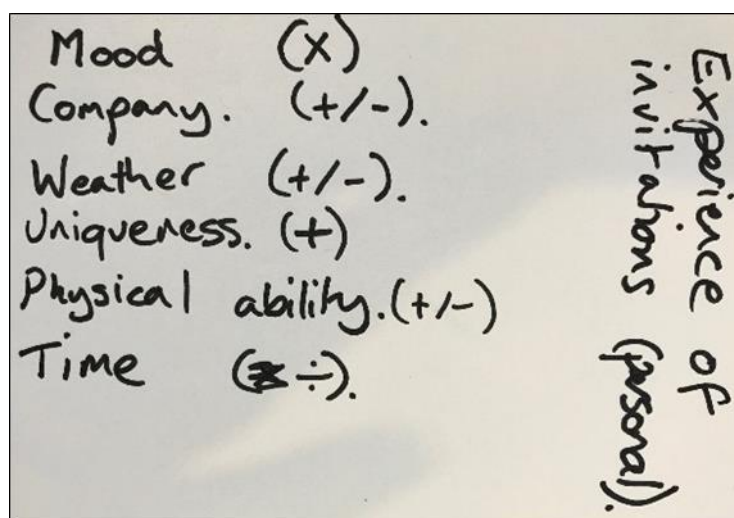 Mood (x)
Company. (+/-).
Weather (+/-).
Uniqueness. (+)
Physical ability. (+/-)
Time (÷).
Experience of
invitations (personal).